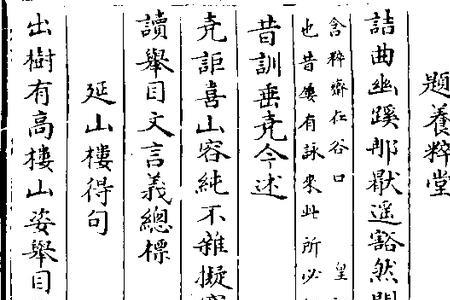 題養粹堂
詰曲幽蹊那厭遙豁然
含粹齋在谷口 皇
也昔屢有詠來此所必
昔訓垂克今述
克詎喜山容純不雜擬
讀舉目文言義總標
延山樓得句
出樹有高樓山姿舉目